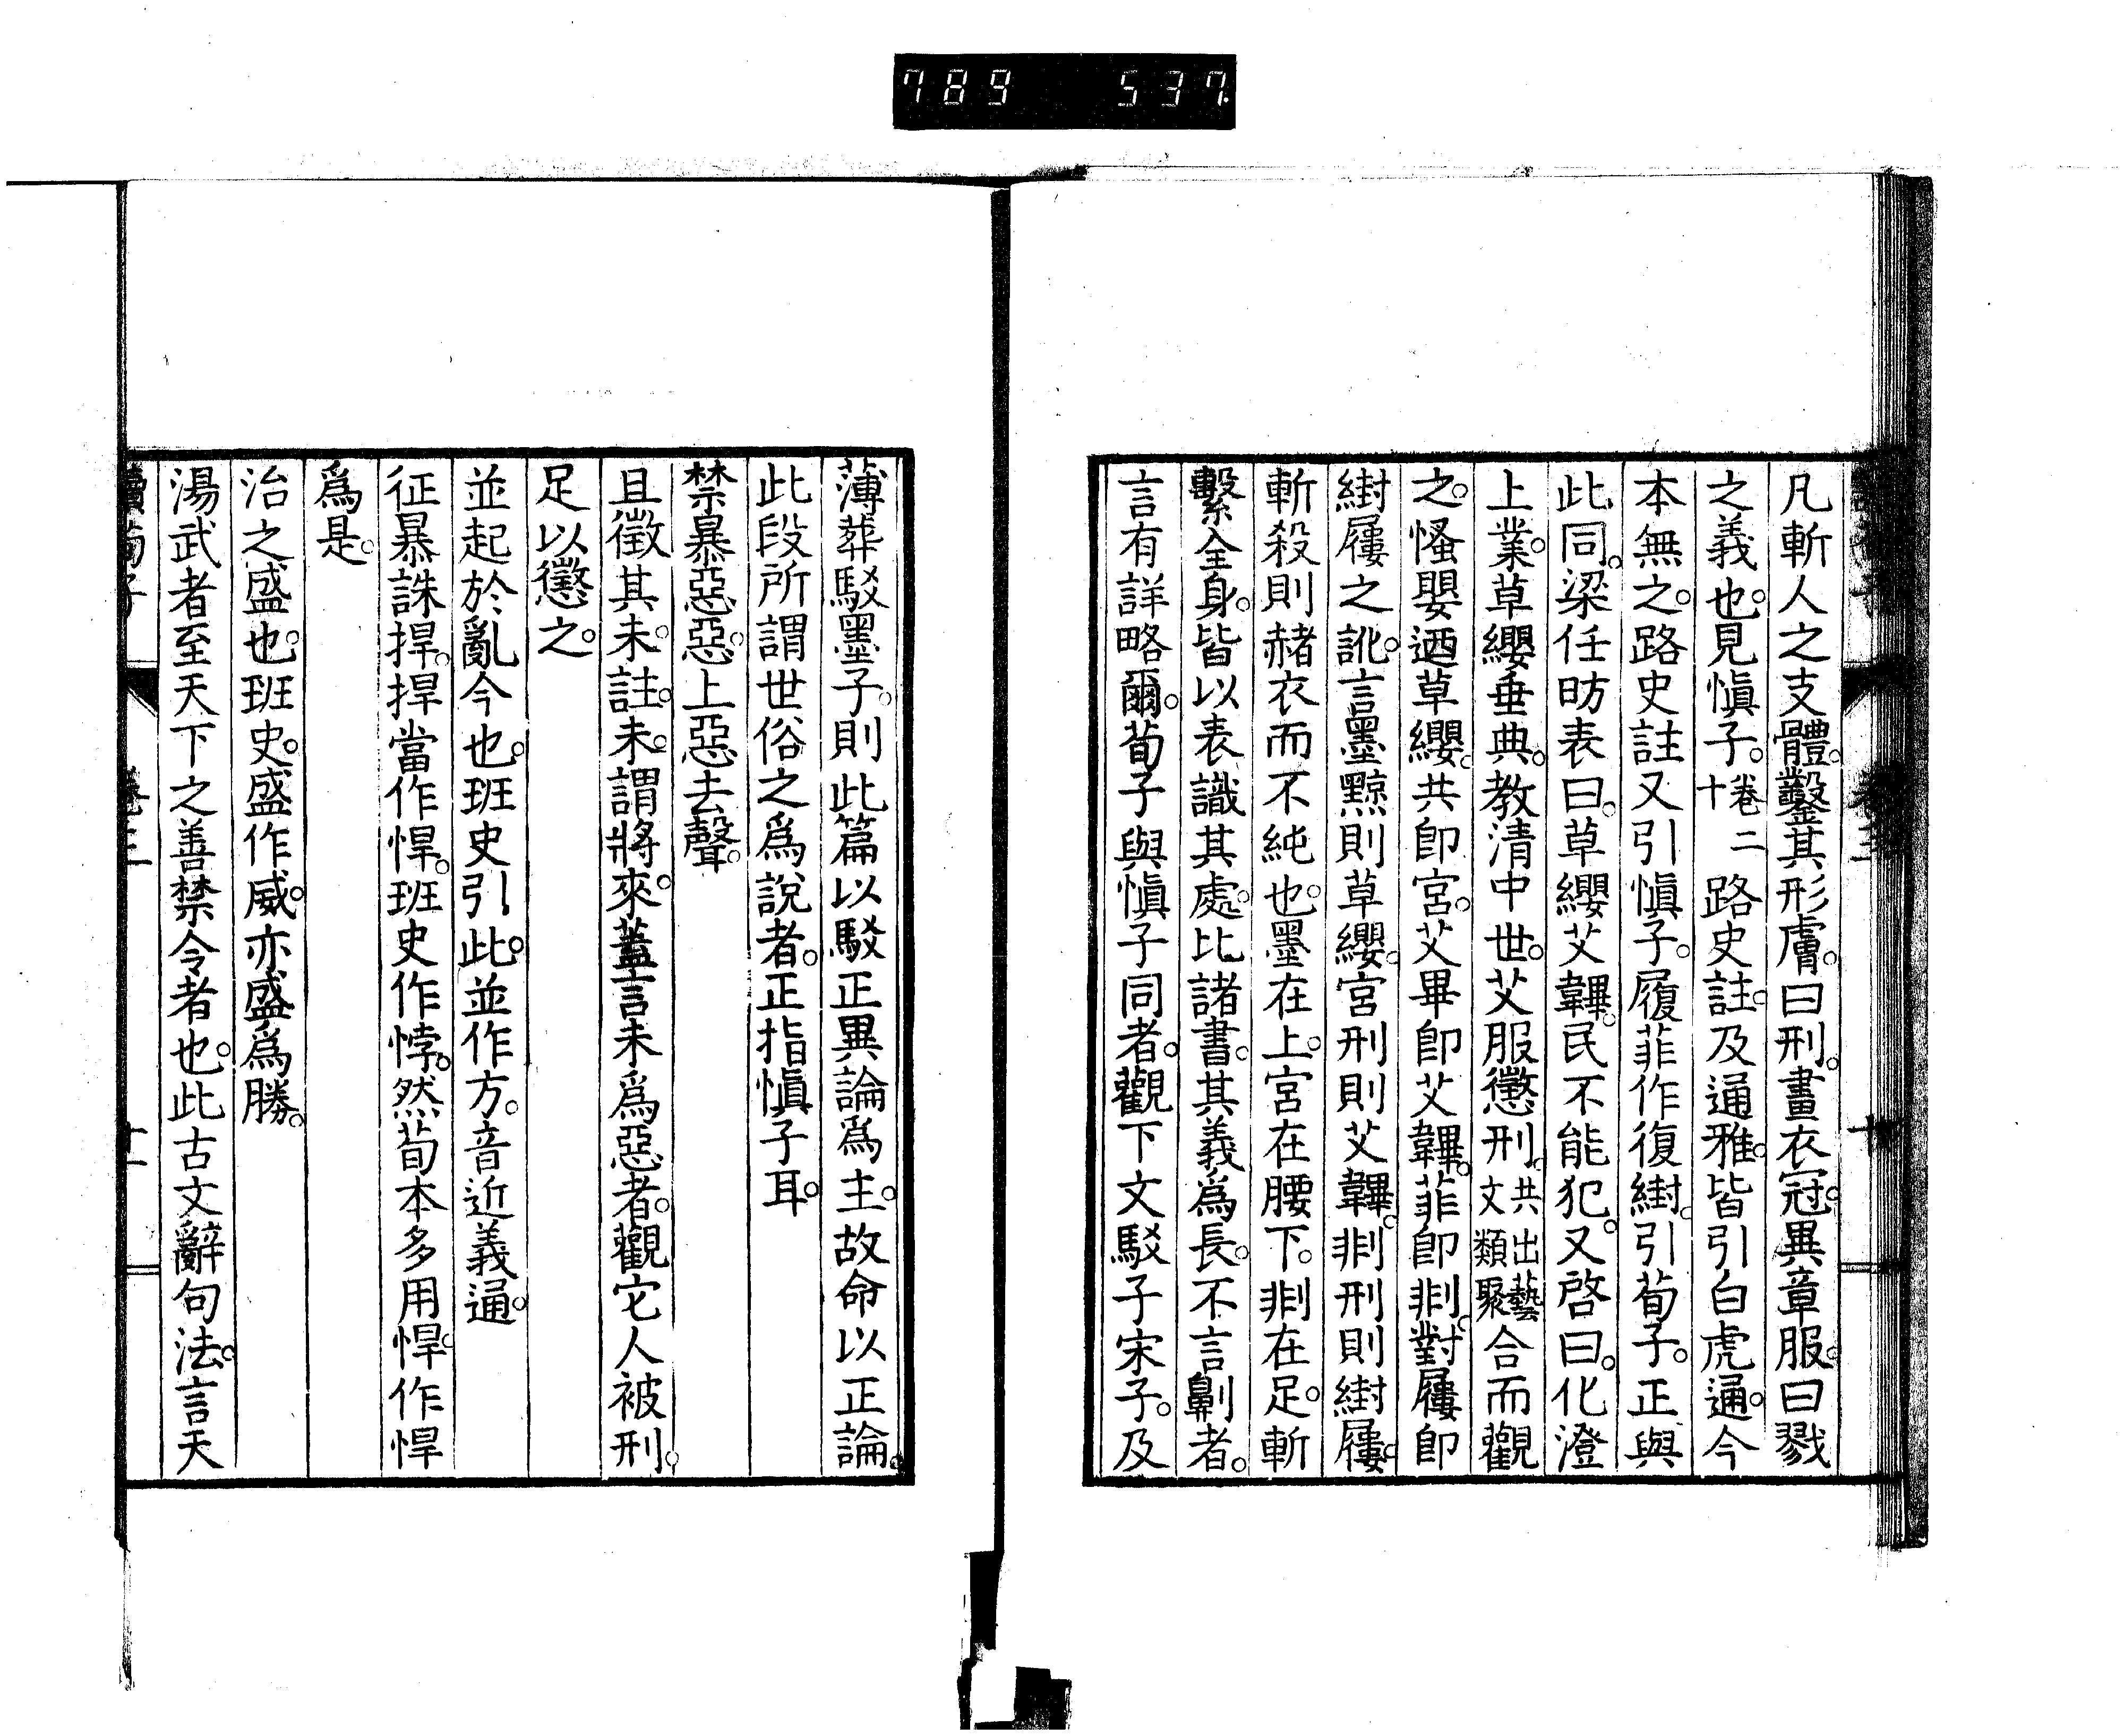 789 537
凡斬人之支體。鑿其形膚。曰刑。畫衣冠。異章服。曰戮
之義也。見愼子。卷二十路史註。及通雅。皆引白虎通。今
本無之。路史註又引愼子。履菲作復紨。引荀子。正與
此同。梁任昉表曰。草纓艾韠。民不能犯。又啓曰。化澄
上業。草纓垂典。教清中世。艾服懲刑。共出藝文類聚合而觀
之。慅嬰迺草纓。共卽宮。艾畢卽艾韠。菲卽剕。對屨卽
紨屨之訛。言墨黥則草纓。宮刑則艾韠。剕刑則紨屨。
斬殺則赭衣而不純也。墨在上。宮在腰下。剕在足。斬
繫全身。皆以表識其處。比諸書。其義爲長。不言劓者。
言有詳略爾。荀子與愼子同者。觀下文駁子宋子。及
薄葬駁墨子。則此篇以駁正異論爲主。故命以正論。
此段所謂世俗之爲說者。正指愼子耳。
禁暴惡惡。上惡去聲。
且徵其未。註。未謂將來。蓋言未爲惡者。觀它人被刑。
足以懲之。
並起於亂今也。班史引此。並作方。音近義通。
征暴誅捍。捍當作悍。班史作悖。然荀本多用悍。作悍
爲是。
治之盛也。班史。盛作威。亦盛爲勝。
湯武者至天下之善禁令者也。此古文辭句法。言天
讀荀子 卷三 十一